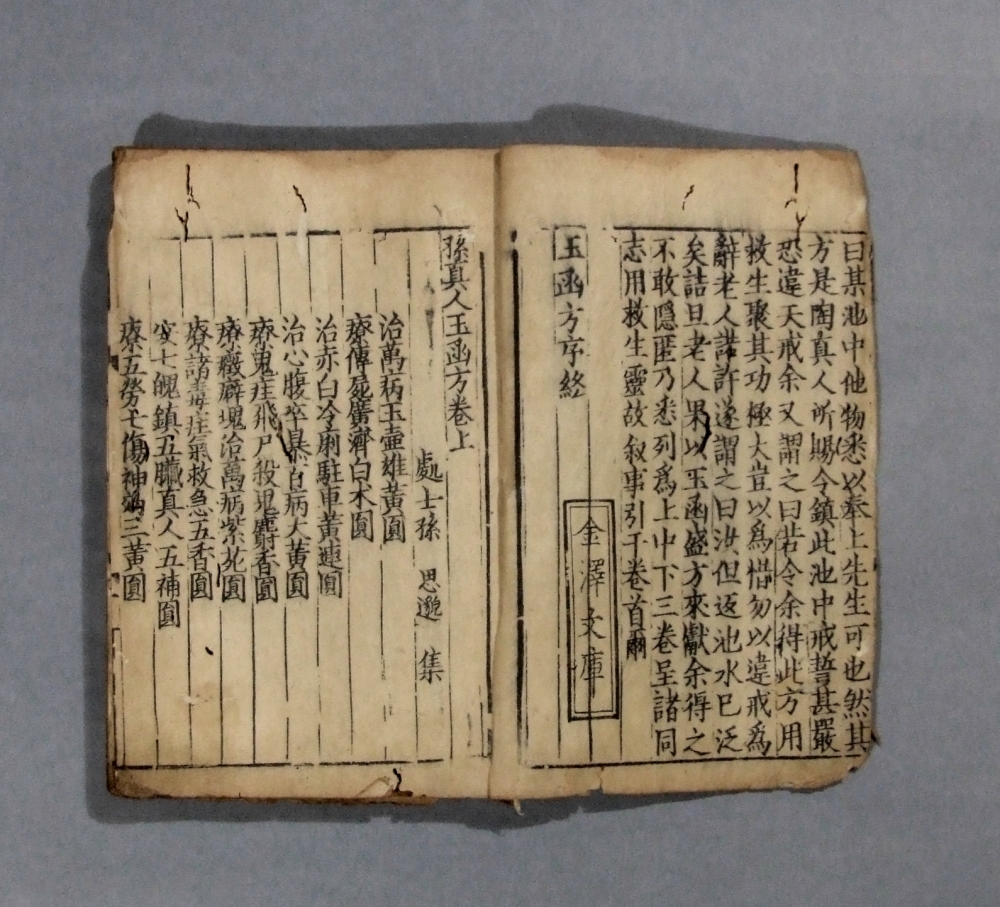 曰某池中他物悉以奉上先生可也然其
方是陶真人所賜今鎮此池中戒誓甚嚴
恐違天戒余又謂之曰若令余得此方用
救生聚其功極大豈以為惜勿以違戒為
辭老人諾許遂謂之曰汝但返池水已泛
矣詰旦老人果以玉函盛方來獻余得之
不敢隱匿乃悉列為上中下三卷呈諸同
志用救生靈故叙事引于卷首爾
玉函方序終
金澤文庫
孫真人玉函方卷上
處士孫 思邈 集
治萬病玉壺雄黃圓
療傳屍廣濟白朮圓
治赤白冷痢駐車黃連圓
治心腹卒暴百病大黃圓
療鬼疰飛尸殺鬼麝香圓
療癥癖塊治萬病紫菀圓
療諸毒疰氣救急五香圓
安七魄鎮五臟真人五補圓
療五勞七傷神三黃圓